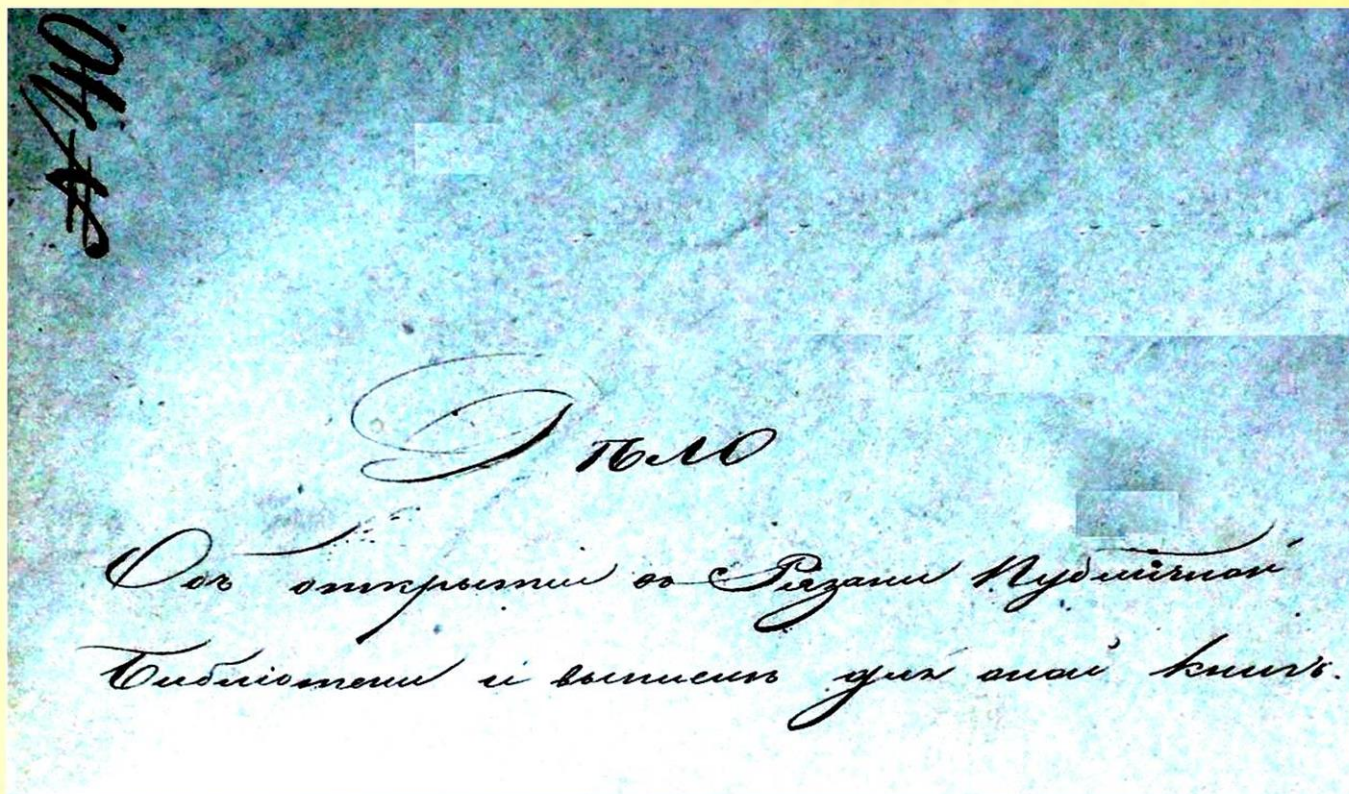 № 40.
Дѣло
Объ открытіи въ Рязани Публичной
Библіотеки и выпискѣ для оной книгъ.